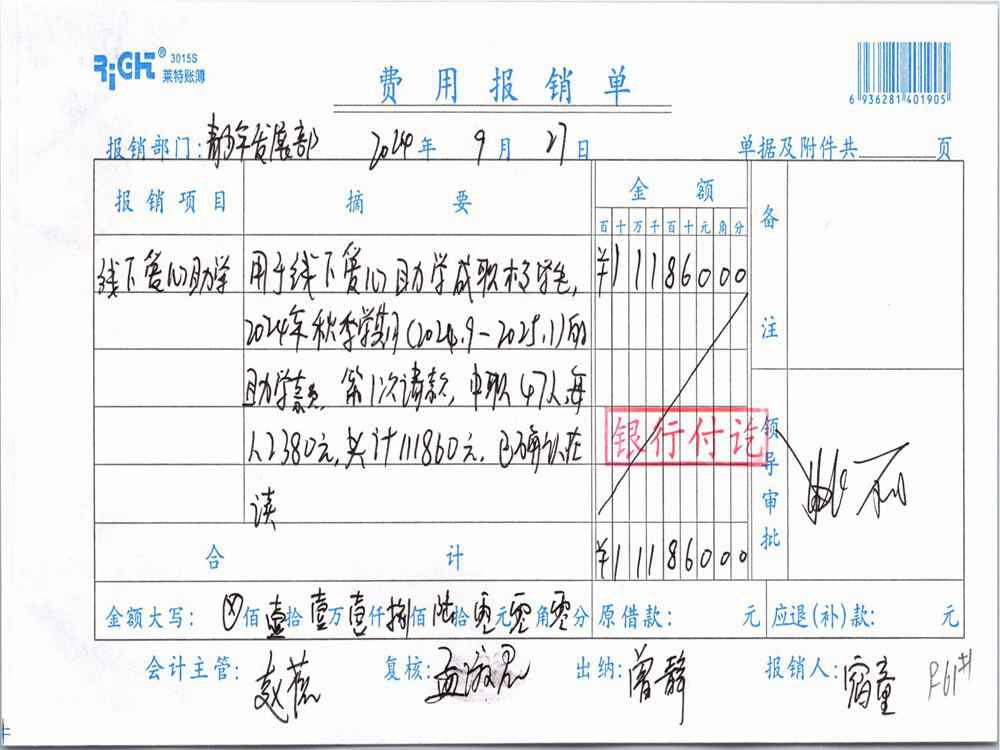 RiGHT® 3015S
莱特账簿
费用报销单
6 936281 401905
报销部门：青少年发展部 2024年9月27日 单据及附件共 页
报销项目 摘要 金额 备注
百十万千百十元角分
线下爱心助学 用于线下爱心助学成职校学生， ¥11186000
2024年秋季学期(2024.9-2025.1)的
助学款， 第1次请款，中职47人，每
人2380元，共计111860元，已确认在
读
银行付讫
领导审批
合计 ¥11186000
金额大写：⊗佰壹拾壹万壹仟捌佰陆拾零元零角零分 原借款： 元 应退(补)款： 元
会计主管： 复核： 出纳：曾静 报销人：